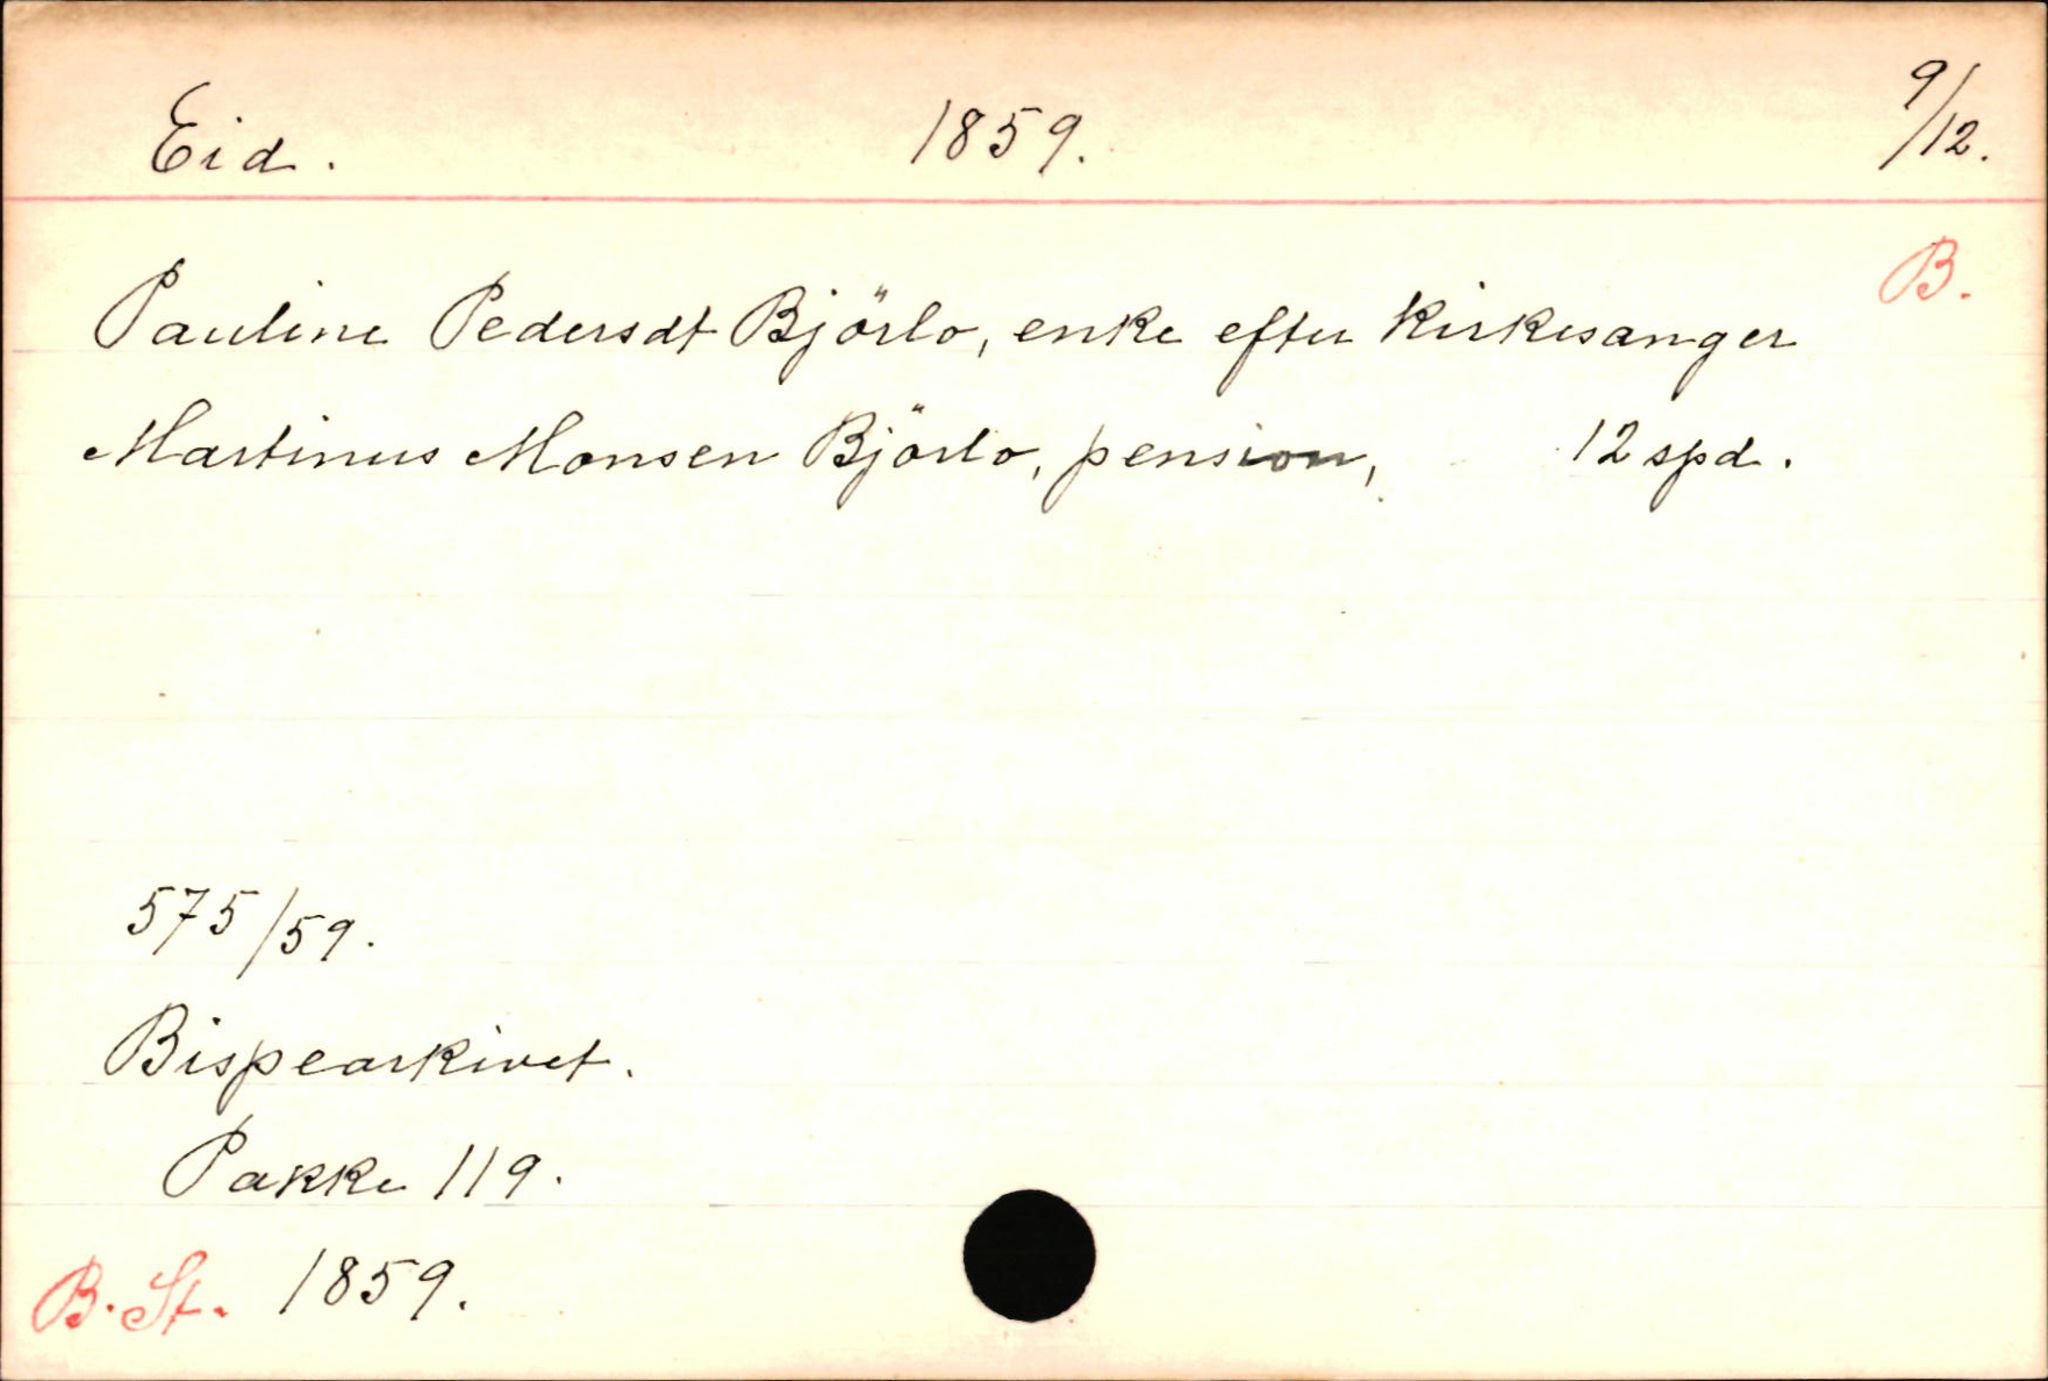 Eid. 1859. 9/12.
B.
Pauline Pedersdt Björlo, enke efter kirkesanger
Martinus Monsen Björlo, pension, 12 spd.
575/59.
Bispearkivet.
Pakke 119.
B. St. 1859.